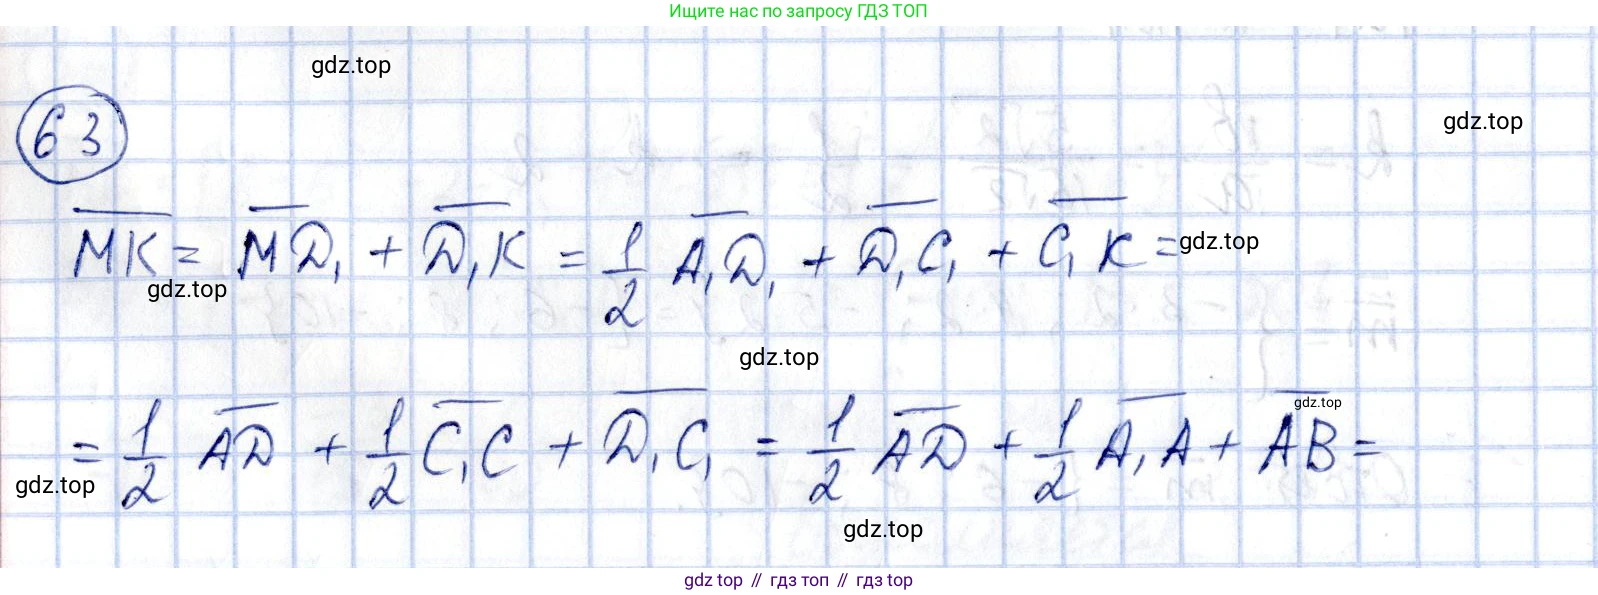 Ищите нас по запросу ГДЗ ТОП
gdz.top
63
gdz.top
MK = MD₁ + D₁K = 1/2 A₁D₁ + D₁C₁ + C₁K =
gdz.top
gdz.top
gdz.top
gdz.top
= 1/2 AD + 1/2 C₁C + D₁C₁ = 1/2 AD + 1/2 A₁A + AB =
gdz.top
gdz.top
gdz top // гдз топ // гдз top